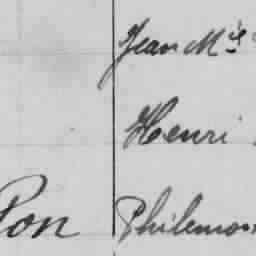 Jean Mie
Henri
Pon Philemon